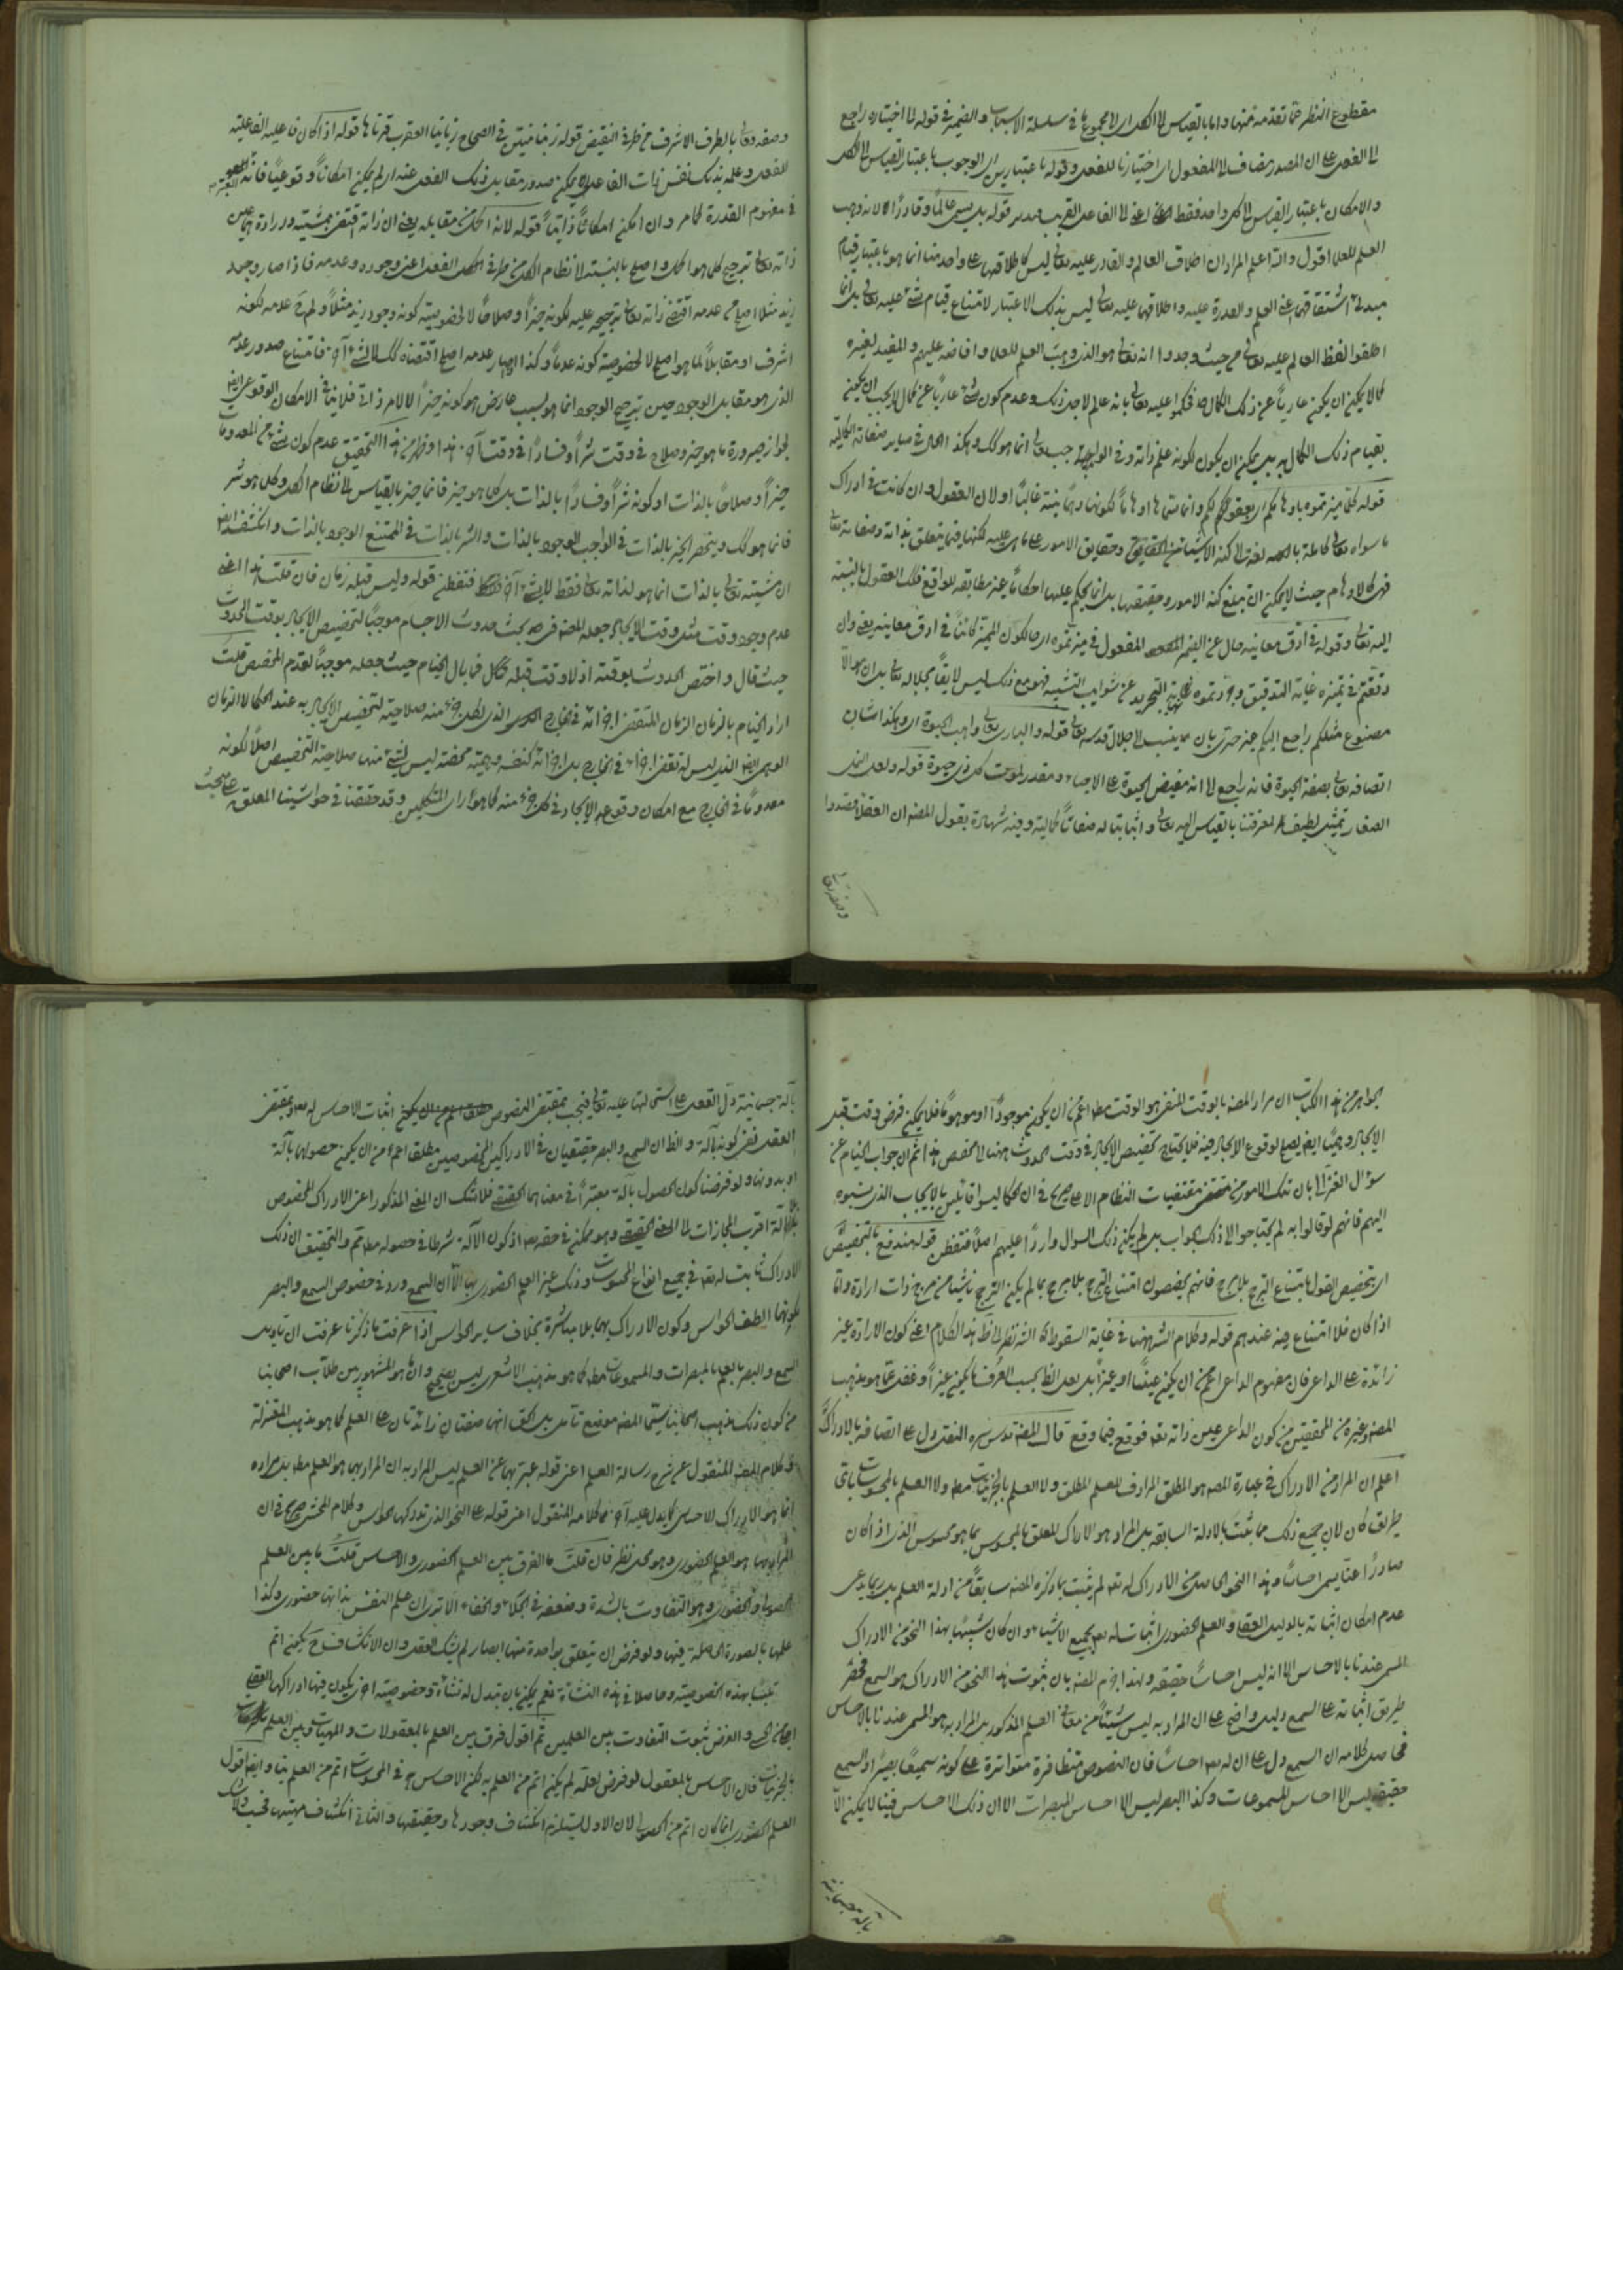 مقطوع النظر عما تقدمه منها واما بالقياس الى الكل اى الى مجموع ما فى سلسلة الاسباب والضمير فى قوله لا اختياره راجع
الى الفعل على ان المصدر مضاف الى المفعول اى اختيارنا للفعل وقوله باعتبارين اى الوجوب باعتبار القياس الى الكل
والامكان باعتبار القياس الى كل واحد فقط اعنى الفاعل القريب قوله بل يسمى عالما وقادرا الا لانه وهب
العلم للعلماء اقول والله اعلم المراد ان اطلاق العالم والقادر عليه تعالى ليس كاطلاقهما على واحد منا انما هو باعتبار قيام
مبدئ اشتقاقهما اعنى العلم والقدرة عليه واطلاقهما عليه تعالى ليس بذلك الاعتبار لامتناع قيام شئ عليه تعالى بل انما
اطلقوا لفظ العالم عليه تعالى من حيث وجدوا انه تعالى هو الذى وهب العلم للعلماء وافاضه عليهم والمفيد لغيره
كمالا يمكن ان يكون عاريا عن ذلك الكمال فحكموا عليه تعالى بانه عالم لاجل ذلك وعدم كون شئ عاريا عن كمال لا يجب ان يكون
بقيام ذلك الكمال به بل يمكن ان يكون لكونه علم ذاته وفى الواجب تعالى انما هو كك وهكذا الحال فى ساير صفاته الكمالية
قوله كلما ميزتموه باوهامكم اى بعقولكم وانما سماها اوهاما لكونها وهمانية غالبا او لان العقول وان كانت فى ادراك
ما سواه تعالى كاملة بالغة الى كنه الاشياء وحقايق الامور على ما هى عليه لكنها فيما يتعلق بذاته وصفاته تعالى
فهى كالاوهام حيث لا يمكن ان تبلغ كنه الامور وحقيقتها بل انما يحكم عليها احكاما غير مطابقه للواقع فتلك العقول بالنسبة
اليه تعالى وقوله فى ادق معانيه حال عن الضمير المفعول فى ميزتموه اى حالكون المميز كائنا فى ادق معانيه يعنى وان
دققتم فى تميزه غاية التدقيق وجردتموه نهاية التجريد عن شوايب التشبيه فهو مع ذلك ليس لايقا بجلاله تعالى بل ان هو الا
مصنوع مثلكم راجع اليكم غير حرى بان ينسب لاجلال قدسه تعالى قوله والبارى تعالى واهب الحيوة اى وهكذا شان
اتصافه تعالى بصفة الحيوة فانه راجع الى انه مفيض الحيوة على الاحياء ومقدر الموت كل ذى حيوة قوله ولعل النمل
الصغار تمثيل لطيف لمعرفتنا بالقياس اليه تعالى واثباتنا له صفاتا كمالية وفيه شهادة بقول المصنف ان العقلاء قصدوا
وصفه تعالى
وصفه تعالى بالطرف الاشرف من طرفى النقيض قوله زبانيتين فى الصحاح زبانيا العقرب قرناها قوله اذا كان فاعليه الفاعلية
للفعل وعلمه بذلك نفس ذات الفاعل لا يمكن صدور مقابل ذلك الفعل عنه اى لم يمكن امكانا وقوعيا فانه المعتبر
فى مفهوم القدرة كما مر وان امكن امكانا ذاتيا قوله لانه احكم من مقابله يعنى ان ذاته اقتضى بمشيته وارادته التى هى عين
ذاته تعالى ترجيح كل ما هو احكم واصلح بالنسبة الى نظام الكل من طرفى الفعل اعنى وجوده وعدمه فاذا صار وجود
زيد مثلا اصلح من عدمه اقتضى ذاته تعالى ترجيحه عليه لكونه خيرا وصلاحا لا لخصوصية كونه وجود زيد مثلا ولم يرجح عدمه لكونه
اشرف او مقابلا لما هو اصلح لا لخصوصية كونه عدما وكذا اذا صار عدمه اصلح اقتضاه كك لا لشئ آخر فامتناع صدور عدمه
الذى هو مقابل الوجود حين ترجيح الوجود انما هو بسبب عارض هو كونه خيرا لا لامر ذاتى فلا ينافى الامكان الوقوعى ايضا
لجواز صيرورة ما هو خير وصلاح فى وقت شرا وفسادا فى وقت آخر هذا وظهر من هذا التحقيق عدم كون شئ من المعدومات
خيرا وصلاحا بالذات او كونه شرا وفسادا بالذات بل كل ما هو خير فانما خير بالقياس الى نظام الكل وكل ما هو شر
فانما هو كك وينحصر الخير بالذات فى الواجب الوجود بالذات والشر بالذات فى الممتنع الوجود بالذات وانكشف ايضا
ان مشيته تعالى بالذات انما هو لذاته تعالى فقط لا لشئ آخر فتفطن قوله وليس قبله زمان فان قلت هذا اعنى
عدم وجود وقت مثل وقت الايجاد جعله المصنف فى بحث حدوث الاجسام موجبا لتخصيص الايجاد بوقت الحدوث
حيث قال واختص الحدوث بوقته اذ لا وقت قبله فما بال الخيام حيث جعله موجبا لعدم المخصص قلت
اراد الخيام بالزمان الزمان المتقضى اجزائه فى الخارج الذى لكل جزء منه صلاحية لتخصيص الايجاد به عند الحكما لا الزمان
الوهمى الذى ليس له تقضى اجزاء فى الخارج بل اجزائه كنفسه وهمية محضة ليس لشئ منها صلاحية التخصيص اصلا لكونه
معدوما فى الخارج مع امكان وقوع الايجاد فى كل جزء منه كما هو رأى المتكلمين وقد حققنا فى حواشينا المعلق على مبحث
الجواهر من هذا الكتاب ان مراد المصنف بالوقت المنفى هو الوقت مطلقا اعم من ان يكون موجودا او موهوما فلا يمكن فرض وقت قبل
الايجاد وهميا ايضا يصلح لوقوع الايجاد فيه فلا يحتاج تخصيص الايجاد فى وقت الحدوث الى مخصص هذا ثم ان جواب الخيام عن
سؤال الغزالى بان تلك الامور من مقتضيات النظام الاعلى صريح فى ان الحكما ليسوا قائلين بالايجاب الذى ينسبوه
اليهم فانهم لو قالوا به لم يحتاجوا الى ذلك الجواب بل لم يكن ذلك السؤال واردا عليهم اصلا فتفطن قوله مندفع بالتخصيص
اى بتخصيص القول بامتناع الترجح بلا مرجح فانهم يخصصون امتناع الترجح بلا مرجح بما لم يكن الترجح ناشيا من مرجح ذات ارادة واما
اذا كان فلا امتناع فيه عندهم قوله وكلام الش ههنا فى غاية السقوط كان الش نظر الى ظاهر هذا الكلام اعنى كون الارادة غير
زائدة على الداعى فان مفهوم الداعى اعم من ان يكون عينا او غيرا بل لعل الظاهر بحسب العرف ما يكون غيرا وغفل عما هو مذهب
المصنف وغيره من المحققين من كون الداعى عين ذاته تعالى فوقع فيما وقع قال المصنف قدس سره النقل دل على اتصافه بالادراك
اعلم ان المراد من الادراك فى عبارة المصنف هو المطلق المرادف للعلم المطلق ولا العلم بالجزئيات مطلقا ولا العلم بالمحسوسات باى
طريق كان لان جميع ذلك مما يثبت بالادلة السابقة بل المراد هو الادراك المتعلق بالمحسوس بما هو محسوس الذى اذا كان
صادرا عنا يسمى احساسا وهذا النحو الخاص من الادراك له تعالى لم يثبت بما ذكره المصنف سابقا من ادلة العلم بل ربما يدعى
عدم امكان اثباته بالدليل العقلى والعلم الحضورى اثباته له تعالى بجميع الاشياء وان كان شبيها بهذا النحو من الادراك
المسمى عندنا بالاحساس الا انه ليس احساسا حقيقة ولهذا جزم المصنف بان ثبوت هذا النحو من الادراك هو السمع فحصر
طريق اثباته على السمع دليل واضح على ان المراد به ليس شيئا من معانى العلم المذكور بل المراد به هو المسمى عندنا بالاحساس
فحاصل كلامه ان السمع دل على ان له تعالى احساسا فان النصوص متظافرة متواترة على كونه سميعا بصيرا والسمع
حقيقة ليس الا احساس المسموعات وكذا البصر ليس الا احساس المبصرات الا ان ذلك الاحساس فينا لا يمكن الا
بآلة جسمانية
بآلة جسمانية دل العقل على استحالتها عليه تعالى فيجب بمقتضى النصوص اثبات الاحساس له تعالى وبمقتضى
العقل نفى كونه بآلة والظاهر ان السمع والبصر حقيقيان فى الادراكين المخصوصين مطلقا اعم من ان يكون حصولهما بآلة
او بدونها ولو فرضنا كون الحصول بآلة معتبرا فى معناهما الحقيقى فلا شك ان المعنى المذكور اعنى الادراك المخصوص
بلا آلة اقرب المجازات الى المعنى الحقيقى وهو ممكن فى حقه تعالى اذ كون الآلة شرطا فى حصوله مطلقا مم والتحقيق ان ذلك
الادراك ثابت له تعالى فى جميع انواع المحسوسات وذلك غير العلم الحضورى بها الا ان السمع ورد فى خصوص السمع والبصر
لكونهما الطف الحواس وكون الادراك بهما بلا مباشرة بخلاف ساير الحواس اذا عرفت ما ذكرنا عرفت ان تاويل
السمع والبصر بالعلم بالمبصرات والمسموعات مطلقا كما هو مذهب الاشعرى ليس بصحيح وان ما هو المشهور بين طلاب اصحابنا
من كون ذلك مذهب اصحابنا سيما المصنف موضع تامل بل الحق انهما صفتان زائدتان على العلم كما هو مذهب المعتزلة
وكلام المصنف المنقول عن شرح رسالة العلم اعنى قوله عبر بهما عن العلم ليس المراد به ان المراد بهما هو العلم مطلقا بل مراده
انما هو الادراك الاحساسى كما يدل عليه آخر كلامه المنقول اعنى قوله على النحو الذى تدركها الحواس وكلام المحشى صريح فى ان
المراد بهما هو العلم الحضورى وهو محل نظر فان قلت ما الفرق بين العلم الحضورى والاحساس قلت ما بين العلم
الحصولى والحضورى وهو التفاوت بالشدة وضعفه فى الجلاء والخفاء الا ترى ان علم النفس بذاتها حضورى وكذا
علمها بالصورة الحاصلة فيها ولو فرض ان يتعلق بواحدة منها ابصار لم يشك العقل فى ان الانكشاف ح يكون اتم
تلبسها بهذه الخصوصية وحاصلا فى هذه النشأة نعم يمكن بان تبدل له نشأة وخصوصية اخرى يكون فيها ادراكها العقلى
والغرض ثبوت التفاوت بين العلمين ثم اقول فرق بين العلم بالمعقولات والمهيات وبين العلم
بالجزئيات فان الاحساس بالمعقول لو فرض تعلقه لم يكن اتم من العلم به لكن الاحساس فى المحسوسات اتم من العلم بها وايضا اقول
العلم الحضورى انما كان اتم من الحصولى لان الاول يستلزم انكشاف وجودها وحقيقتها والثانى انكشاف مهيتها فحسب ولا شك